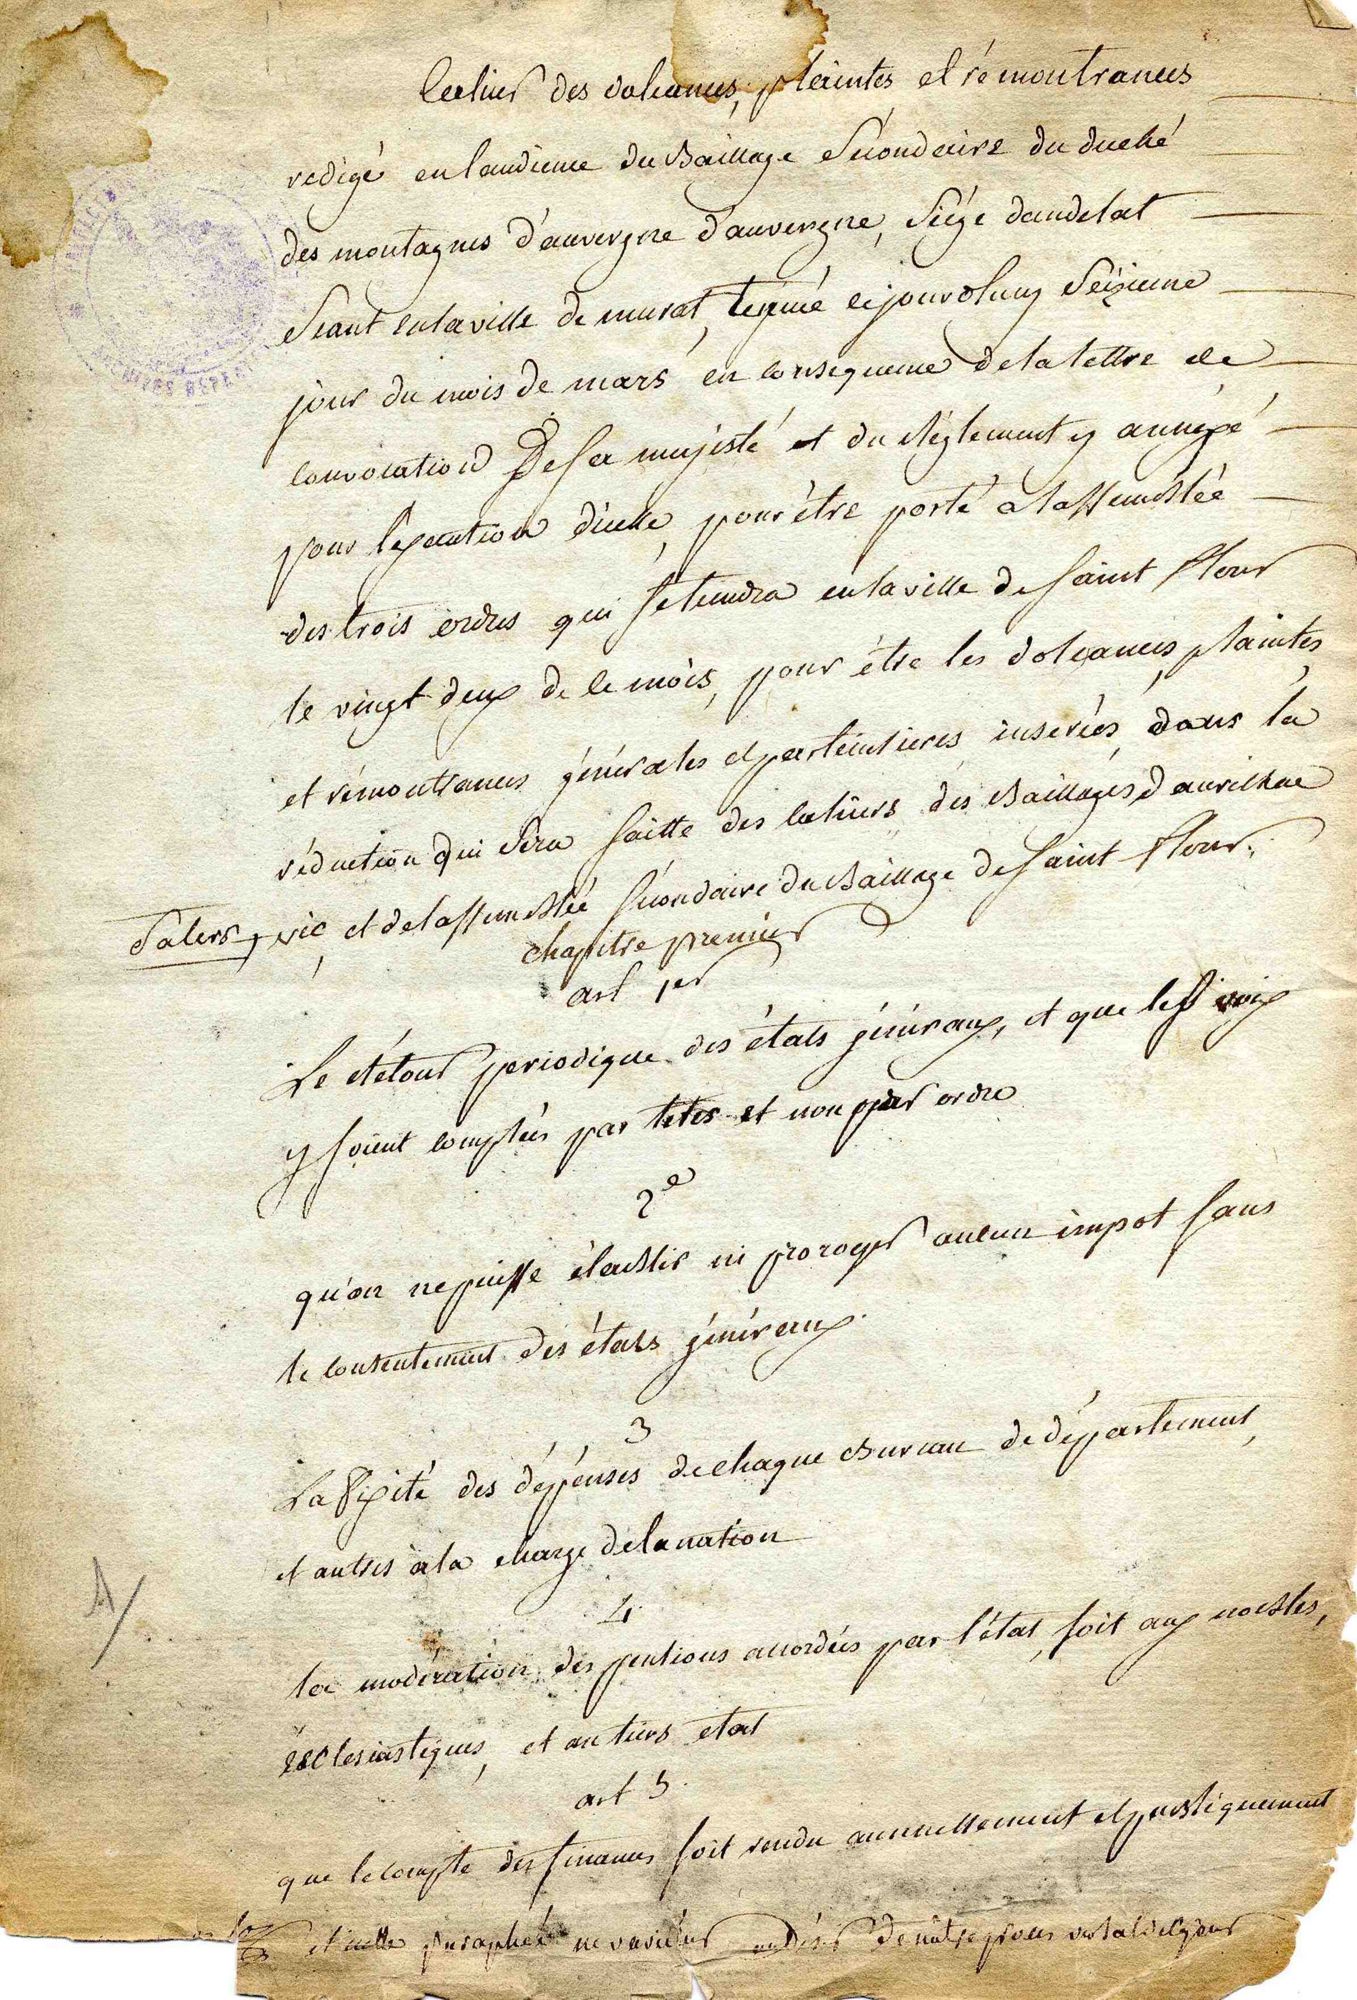 Cahier des doleances, plaintes et rémontrances
redigé en laudience du Bailliage sécondaire du duché
des montagnes d'auvergne d'auvergne, siége dandelat
séant en la ville de murat, cejourdhuy séizieme
jour du mois de mars en consequence de la lettre de
convocation De sa majesté et du Réglement y annéxé
pour léxecution dicelle, pour être porté a lassemblée
des trois ordres qui sétiendra en la ville de saint flour
le vingt deux de ce mois, pour étre les doleances, plaintes
et rémontrances générales et particulieres inserées dans la
réduction qui séra faitte des cahiers des Baillages daurilhac
Salers, vic, et de lassemblée sécondaire du Baillage de saint flour.
chapitre premier
art 1er
Le rétour periodique des états généraux, et que les voix
y soient comptées par tetes et non par ordre
2e
qu'on ne puisse établir ni proroger aucun impot sans
le consentement des états généraux.
3
La fixité des dépenses de chaque Bureau de département,
et autres à la charge de la nation
4
la modération des pentions accordées par l'état, soit aux nobles,
ecclesiastiques, et au tiers etat
art 5
que le compte des finances soit rendu annuellement et publiquement
et cotté paraphé ne varietur au désir de nôtre procès verbal de ce jour
A/
ARCHIVES DEPART